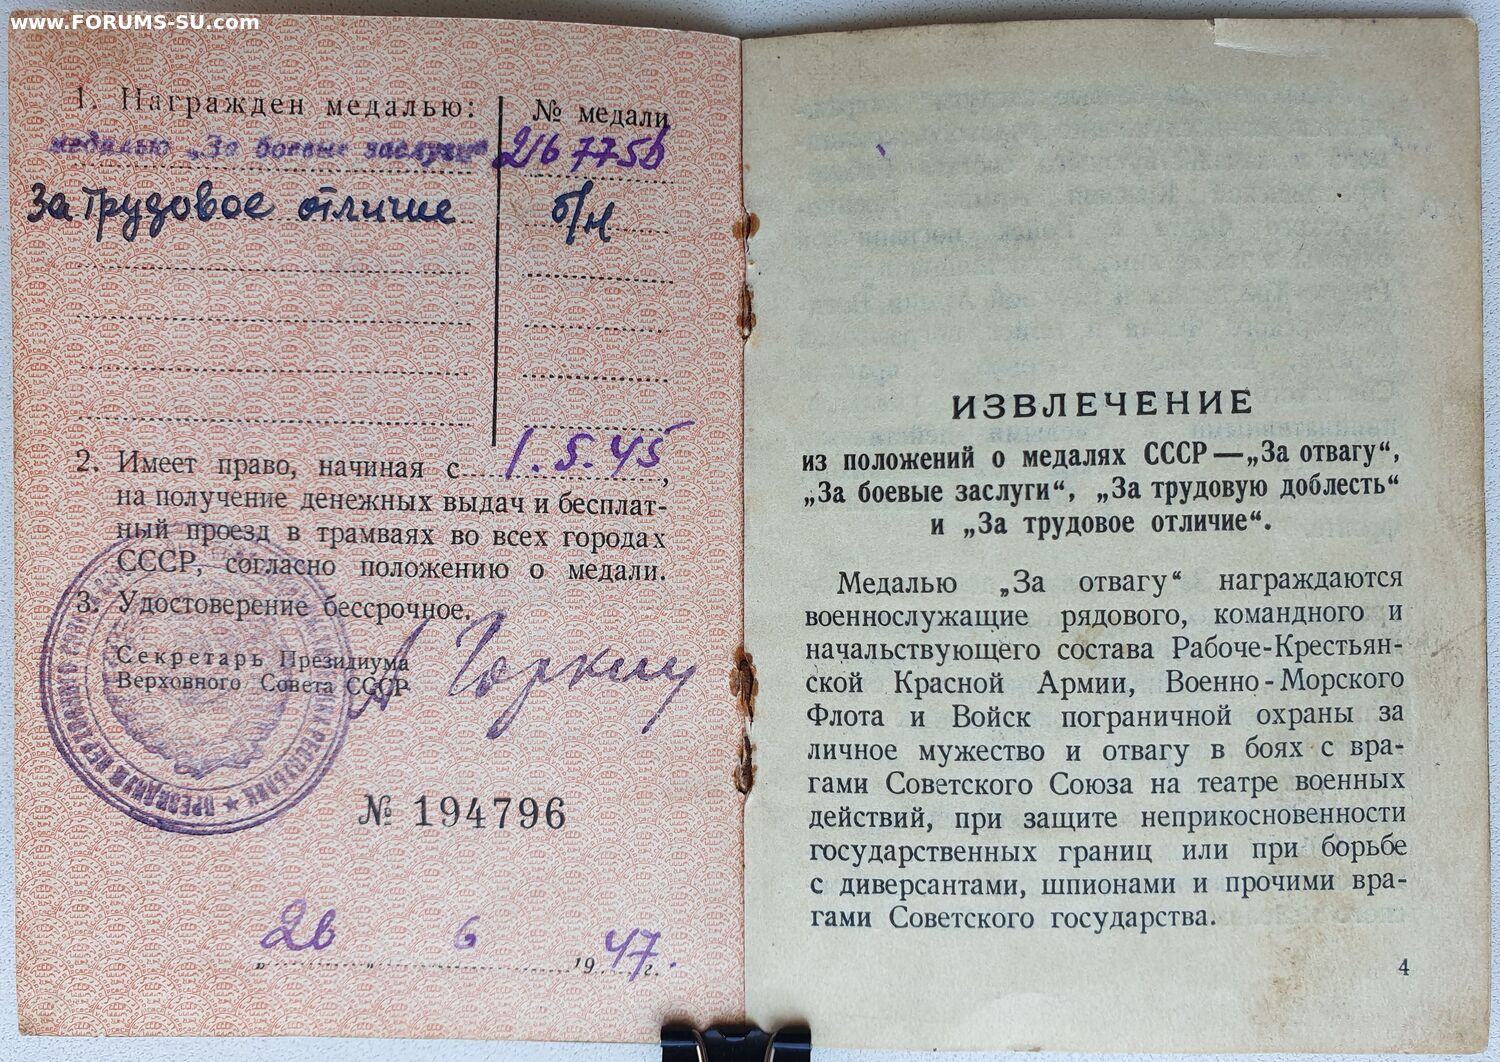 www.FORUMS-SU.com
1. Награжден медалью:
№ медали
медалью „За боевые заслуги“
2167756
За трудовое отличие
б/н
2. Имеет право, начиная с 1.5.45,
на получение денежных выдач и бесплат-
ный проезд в трамваях во всех городах
СССР, согласно положению о медали.
3. Удостоверение бессрочное.
Секретарь Президиума
Верховного Совета СССР
А Горкин
№ 194796
„26“ 6 1947 г.
ИЗВЛЕЧЕНИЕ
из положений о медалях СССР—„За отвагу“,
„За боевые заслуги“, „За трудовую доблесть“
и „За трудовое отличие“.
Медалью „За отвагу“ награждаются
военнослужащие рядового, командного и
начальствующего состава Рабоче-Крестьян-
ской Красной Армии, Военно-Морского
Флота и Войск пограничной охраны за
личное мужество и отвагу в боях с вра-
гами Советского Союза на театре военных
действий, при защите неприкосновенности
государственных границ или при борьбе
с диверсантами, шпионами и прочими вра-
гами Советского государства.
4